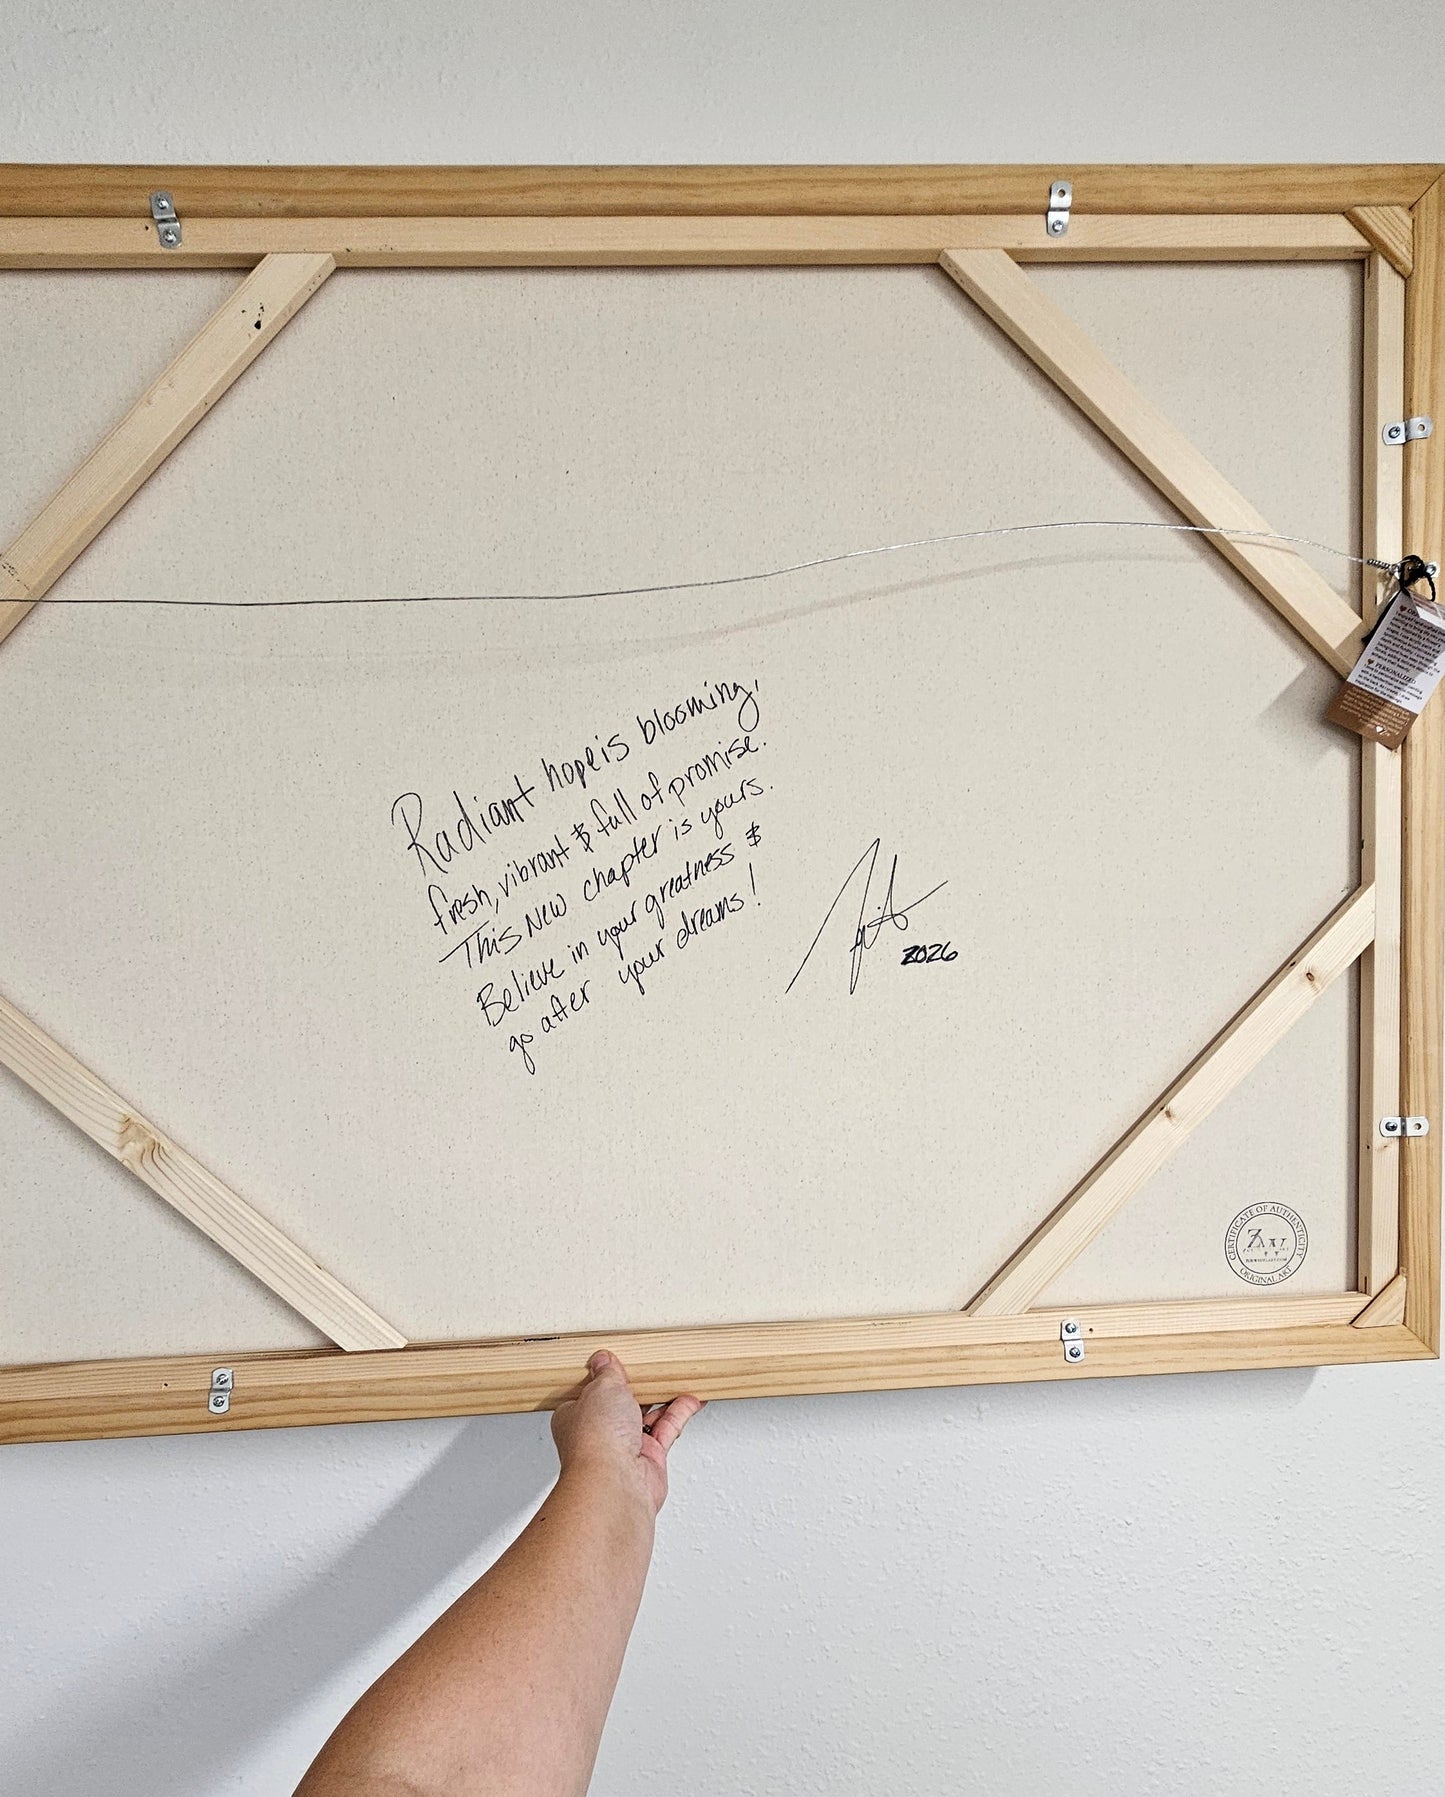 Radiant hope is blooming,
fresh, vibrant & full of promise.
This New chapter is yours.
Believe in your greatness &
go after your dreams!
2026
PERSONALIZED
CERTIFICATE OF AUTHENTICITY
ZAW
ORIGINAL ART